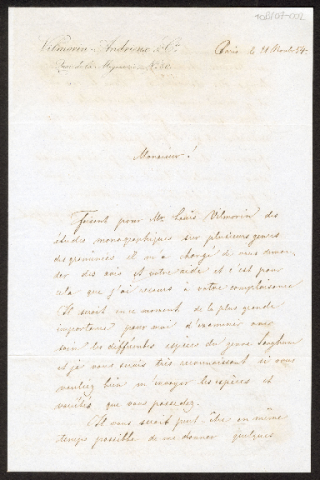 Vilmorin-Andrieux & Cie
Paris le 21 54
Rue de la Mégisserie No. 30
Monsieur!
Faisant pour Mr. Louis Vilmorin des
études monographiques sur plusieurs genres
des graminées il m'a chargé de vous deman-
der des avis et votre aide et c'est pour
cela que j'ai recours à votre complaisance
Il serait en ce moment de la plus grande
importance pour moi d'examiner avec
soin les différentes espèces du genre Sorghum
et je vous serais très reconnaissant si vous
vouliez bien m'envoyer les espèces et
variétés que vous possedez.
Il vous serait peut-être en même
temps possible de me donner quelques